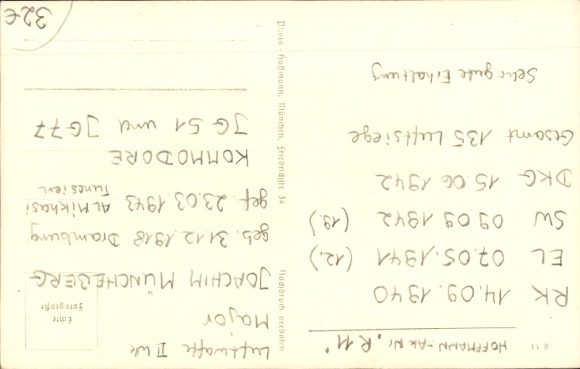 R 11
HOFFMANN-AK Nr. "R 11"
RK 14.09.1940
EL 07.05.1941 (12.)
SW 09 09 1942 (19.)
DKG 15.06 1942
Gesamt 135 Luftsiege
Sehr gute Erhaltung
Nachdruck verboten
Photo-Hoffmann, München, 34
Luftwaffe II Wk
Major
Echte
Fotografie
JOACHIM MÜNCHEBERG
geb. 31.12.1918 Dramburg
gef. 23.03 1943 Al Mikhasi
Tunesien
KOMMODORE
JG 51 und JG 77
32€